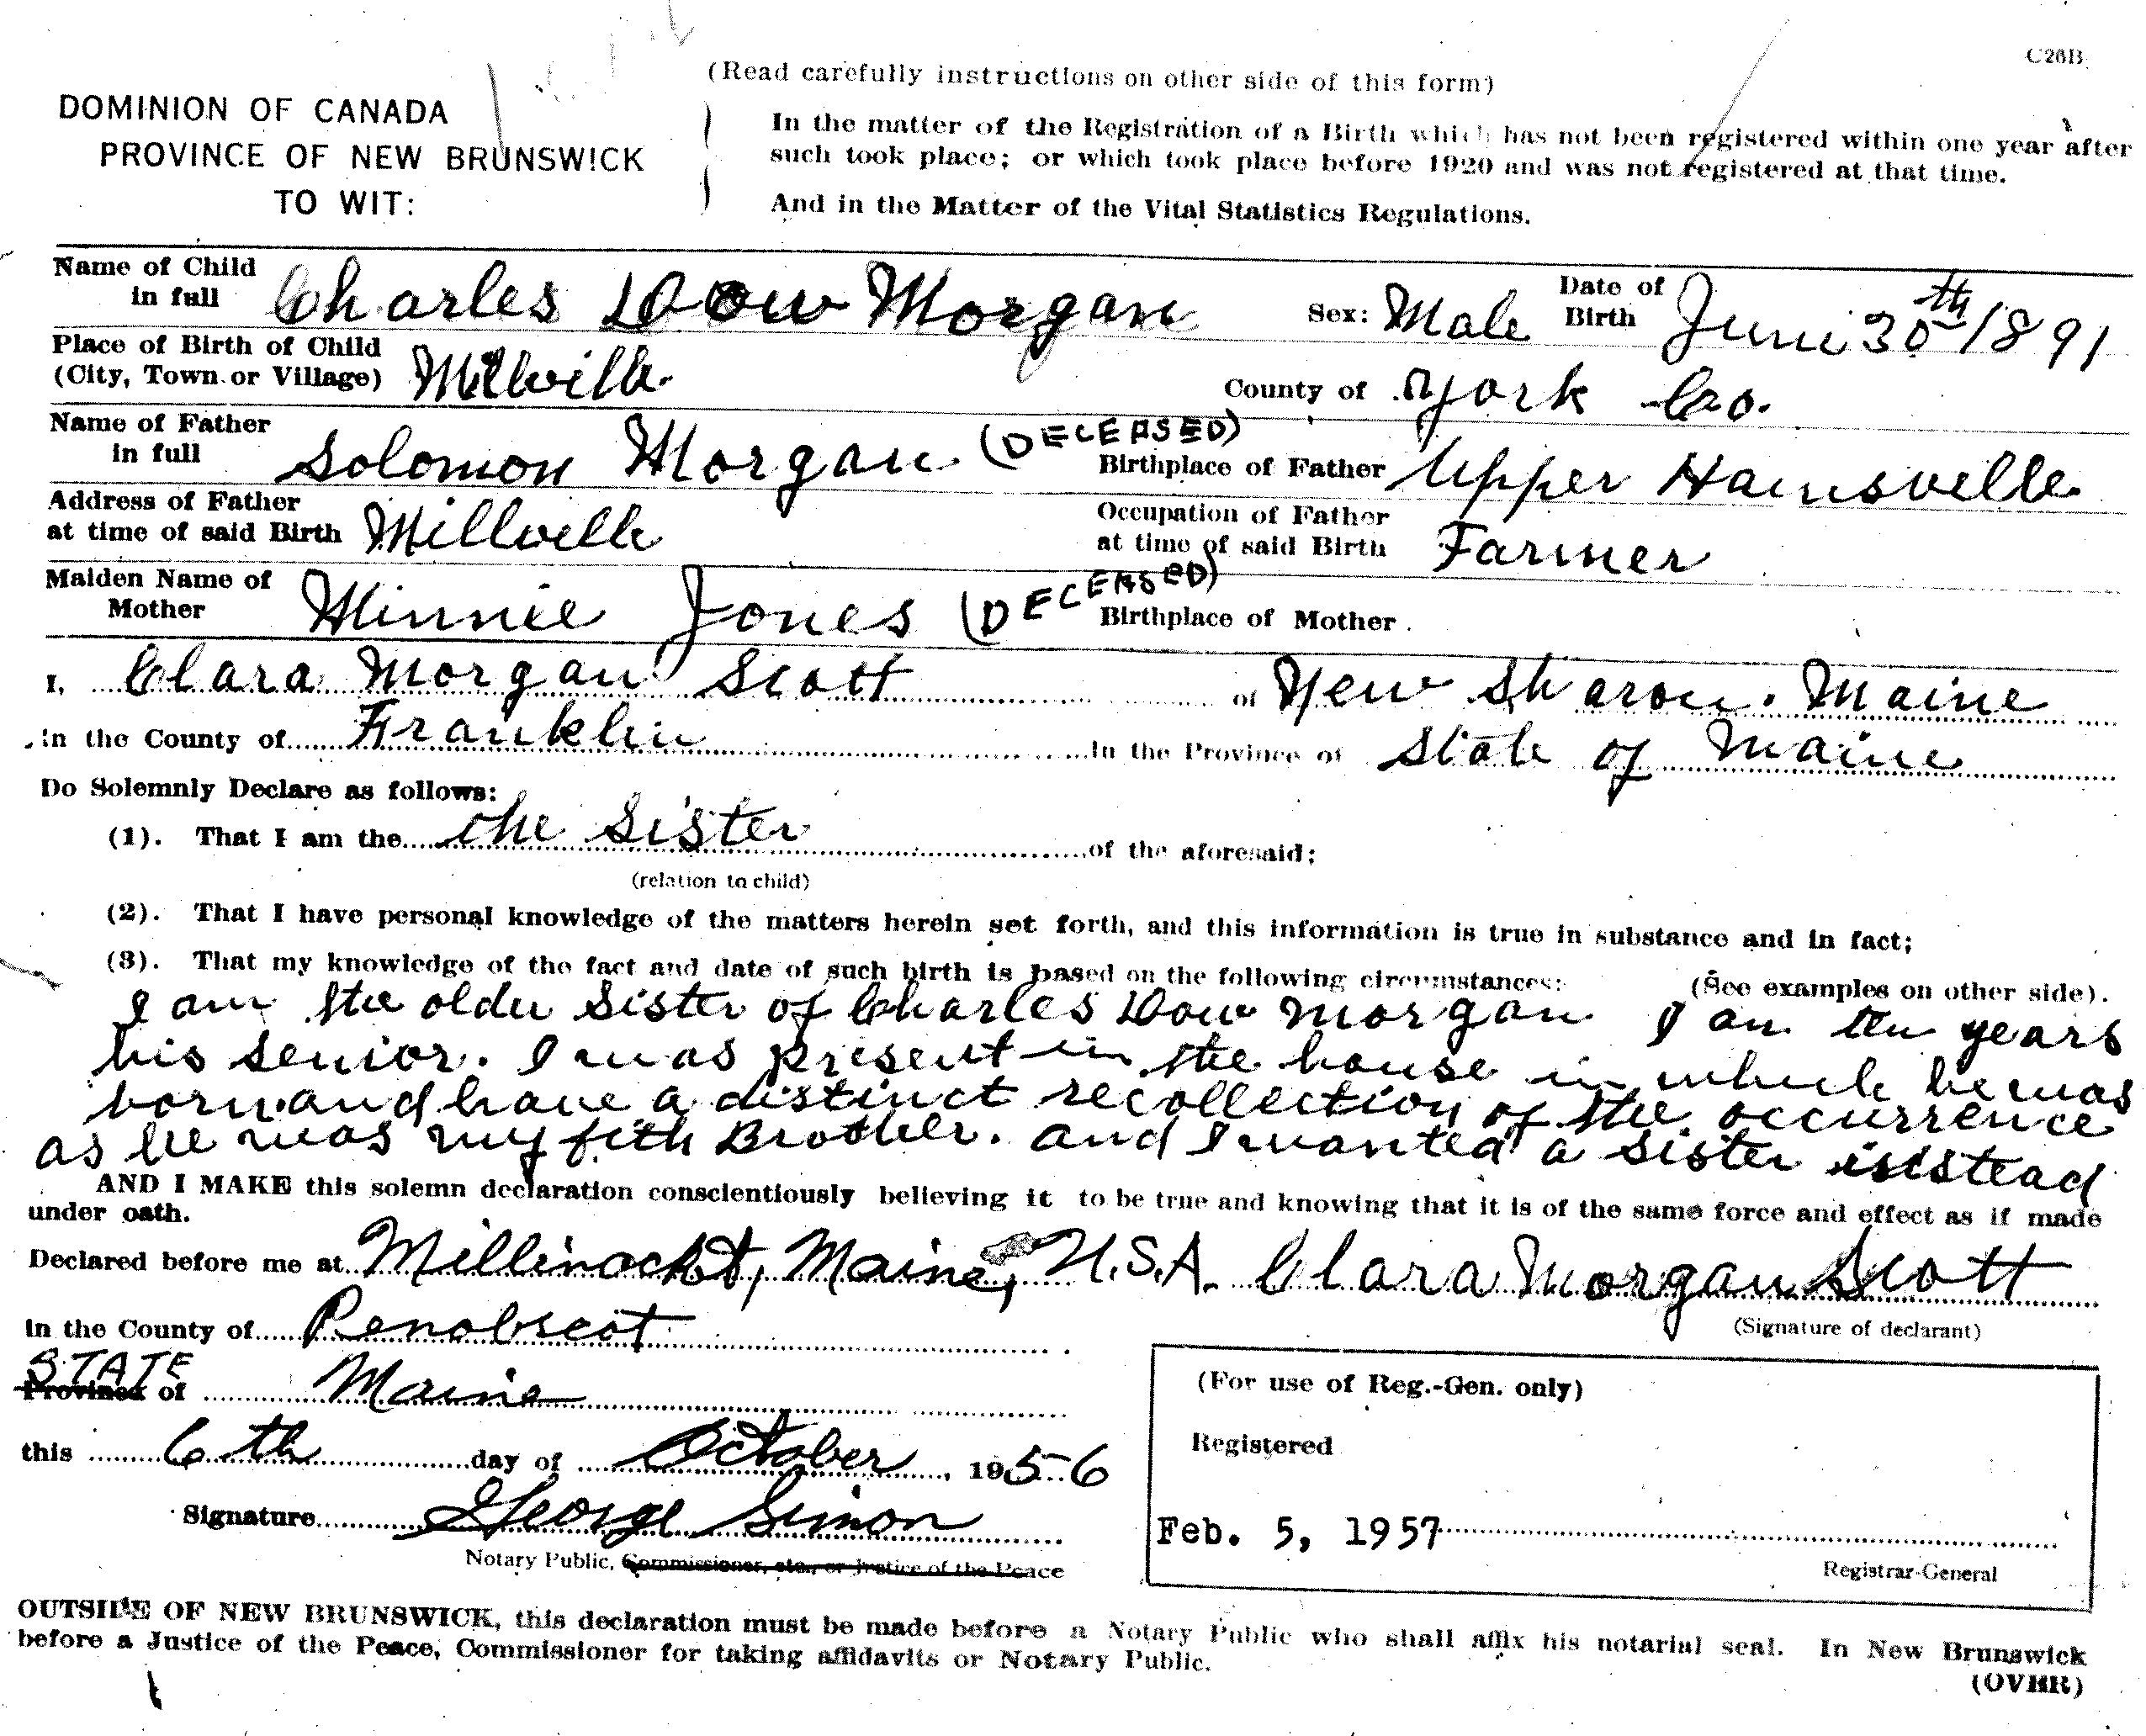 C26B
(Read carefully instructions on other side of this form)
DOMINION OF CANADA
PROVINCE OF NEW BRUNSWICK
TO WIT:
In the matter of the Registration of a Birth which has not been registered within one year after
such took place; or which took place before 1920 and was not registered at that time.
And in the Matter of the Vital Statistics Regulations.
Name of Child in full Charles Dow Morgan Sex: Male Date of Birth June 30th 1891
Place of Birth of Child (City, Town or Village) Millville County of York Co.
Name of Father in full Solomon Morgan (DECEASED) Birthplace of Father Upper Hainsville
Address of Father at time of said Birth Millville Occupation of Father at time of said Birth Farmer
Maiden Name of Mother Minnie Jones (DECEASED) Birthplace of Mother
I, Clara Morgan Scott of New Sharon. Maine
in the County of Franklin in the Province of State of Maine
Do Solemnly Declare as follows:
(1). That I am the the Sister of the aforesaid;
(relation to child)
(2). That I have personal knowledge of the matters herein set forth, and this information is true in substance and in fact;
(3). That my knowledge of the fact and date of such birth is based on the following circumstances: (See examples on other side).
I am the older Sister of Charles Dow Morgan I am ten years
his senior. I was present in the house in which he was
born and have a distinct recollection of the occurrence
as he was my fith Brother. and I wanted a sister isistead
AND I MAKE this solemn declaration conscientiously believing it to be true and knowing that it is of the same force and effect as if made
under oath.
Declared before me at Millinockt, Maine, U.S.A. Clara Morgan Scott
in the County of Penobscot (Signature of declarant)
STATE
Province of Maine
(For use of Reg.-Gen. only)
this 6th day of October, 1956
Registered
Signature George Simon
Feb. 5, 1957
Notary Public, Commissioner, etc., or Justice of the Peace
Registrar-General
OUTSIDE OF NEW BRUNSWICK, this declaration must be made before a Notary Public who shall affix his notarial seal. In New Brunswick
before a Justice of the Peace, Commissioner for taking affidavits or Notary Public.
(OVHR)